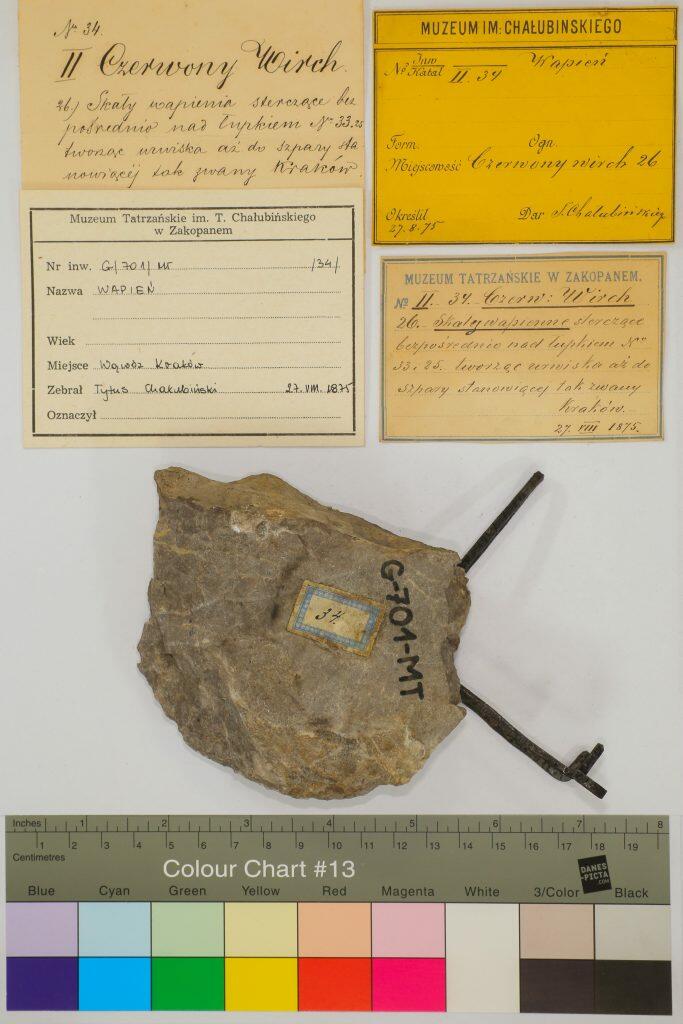 Nr 34.
II Czerwony Wirch.
26.) Skały wapienia sterczące bez
pośrednio nad łupkiem Nº 33.25
tworząc urwiska aż do szpary sta
nowiącej tak zwany Kraków.
MUZEUM IM: CHAŁUBIŃSKIEGO
Nº Inw
Katal II. 34 Wapień
Form. Ogn.
Miejscowość Czerwony wirch 26
Określił Dar T. Chałubińskiego
27.8.75
Muzeum Tatrzańskie im. T. Chałubińskiego
w Zakopanem
Nr inw. G/701/MT /34/
Nazwa WAPIEŃ
Wiek
Miejsce Wąwóz Kraków
Zebrał Tytus Chałubiński 27.VIII.1875
Oznaczył
MUZEUM TATRZAŃSKIE W ZAKOPANEM.
Nº II. 34. Czerw: Wirch
26. Skały wapienne sterczące
bezpośrednio nad łupkiem Nº
33 i 25. tworząc urwiska aż do
szpary stanowiącej tak zwany
Kraków.
27. VIII 1875.
34.
G-701-MT
Inches 1 2 3 4 5 6 7 8
Centimetres 1 2 3 4 5 6 7 8 9 10 11 12 13 14 15 16 17 18 19
Colour Chart #13
DANES
-PICTA
.COM
Blue Cyan Green Yellow Red Magenta White 3/Color Black